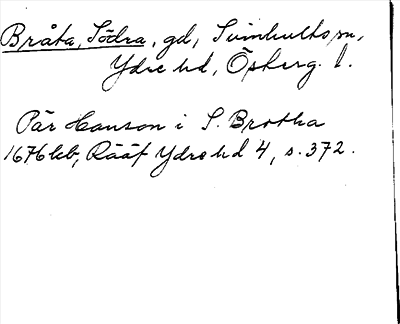 Bråta, Södra, gd, Svinhults sn,
Ydre hd, Österg. l.
Pär Hanson i S. Brotha
1676 kb, Rääf Ydre hd 4, s. 372.